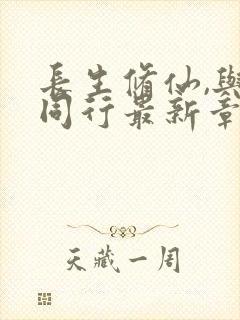 长生修仙,与
同行最新章
天藏一周